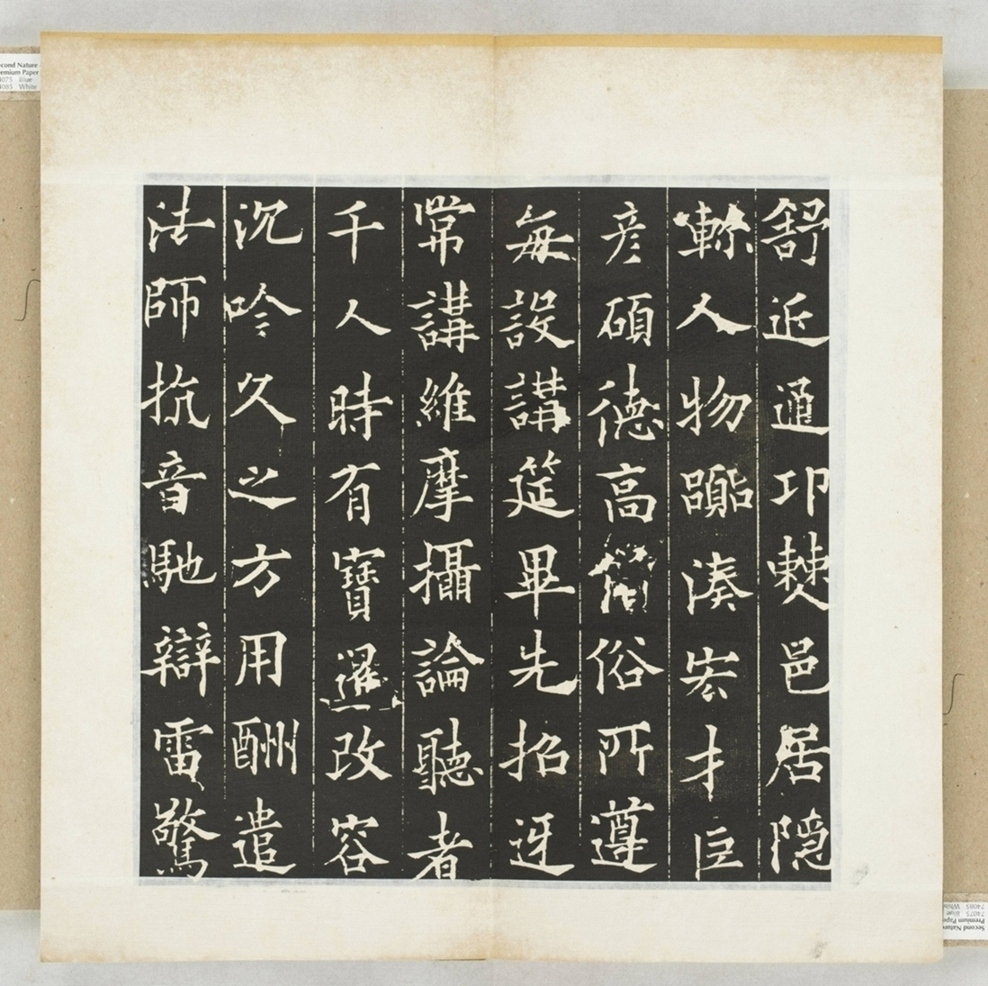 舒近通邛僰邑居隱
軫人物囂湊宏才巨
彥碩德高僧俗所遵
每設講筵畢先招迓
常講維摩攝論聽者
千人時有寶暹改容
沉吟久之方用酬遣
法師抗音馳辯雷驚
Second Nature
Premium Paper
74075 Blue
74085 White
Second Nature
Premium Paper
74075 Blue
74085 White